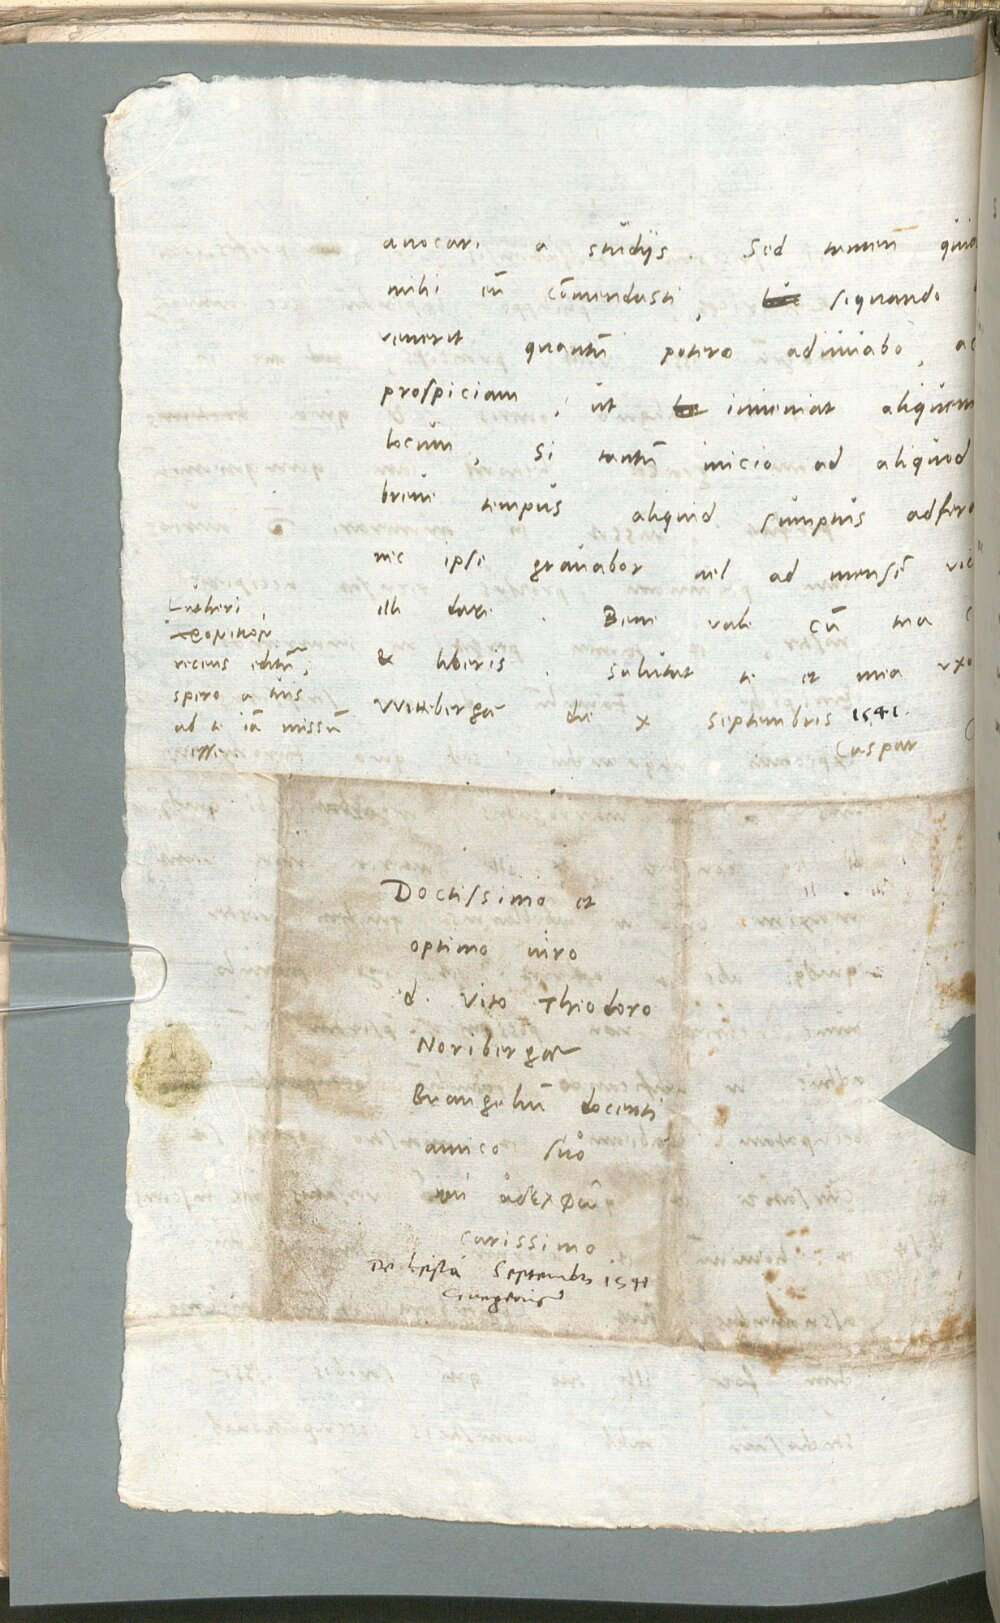 auocari a studijs. Sed tamen quia
mihi eũ cõmendasti, siquando
uenerit quantũ potero adiuuabo, ac
prospiciam, ut inueniat aliquem
locum, Si tantũ inicio ad aliquod
breue tempus aliquid sumptus adfere
nec ipse grauabor uel ad mensẽ vic
illi dare. Bene vale cũ tua c
& liberis. Salutat te et mea uxo
Vuittebergæ die x Septembris 1541.
Caspar C
Lutheri
recens editũ,
spero a tuis
ad te iã missũ
esse.
Doctissimo et
optimo uiro
d. Vito Theodoro
Noribergæ
Euangeliũ docenti
amico suo
carissimo
Septembris 1541